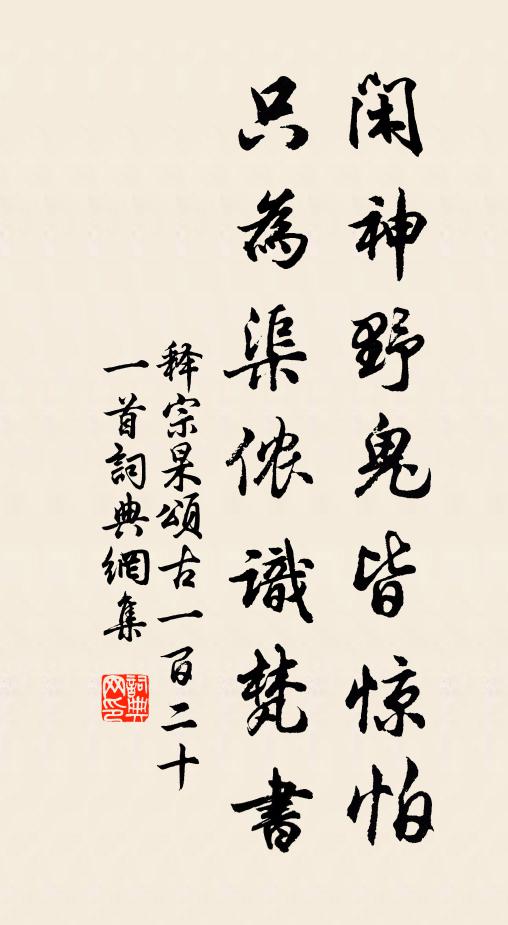 闲神野鬼皆惊怕
只為渠侬識梵書
释宗杲頌古一百二十
一首詞典網集
詞典网印